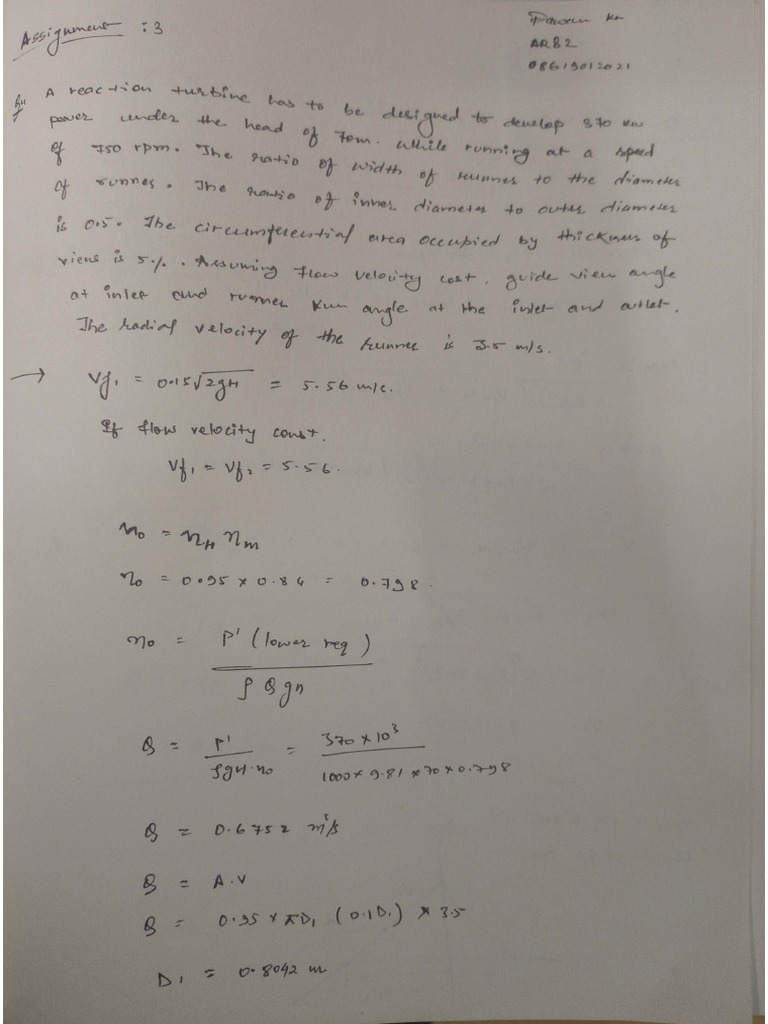 Assignment :3
AR82
08619012021
A reaction turbine has to be designed to develop 370 kw
power under the head of 70m. While running at a speed
of 750 rpm. The ratio of width of runner to the diameter
of runner. The ratio of inner diameter to outer diameter
is 0.5. The circumferential area occupied by thickness of
viens is 5%. Assuming flow velocity cost, guide vien angle
at inlet and runner angle at the inlet and outlet.
The radial velocity of the runner is 3.5 m/s.
→ Vf₁ = 0.15√2gH = 5.56 m/c.
If flow velocity const.
Vf₁ = Vf₂ = 5.56.
η₀ = ηH ηm
η₀ = 0.95 × 0.84 = 0.798.
η₀ = P' (lower req) / ρ Q gH
Q = P' / ρgH·η₀ = 370×10³ / 1000×9.81×70×0.798
Q = 0.6752 m³/s
Q = A.V
Q = 0.95 × πD₁ (0.1D₁) × 3.5
D₁ = 0.8042 m